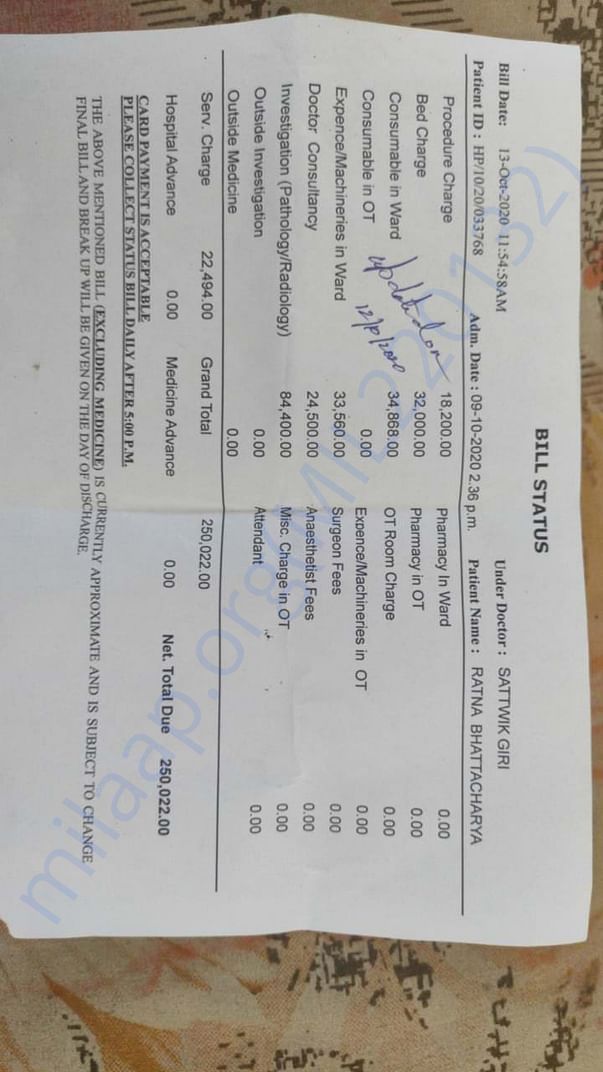 BILL STATUS
Bill Date: 13-Oct-2020 11:54:58AM Under Doctor : SATTWIK GIRI
Patient ID : HP/10/20/033768 Adm. Date : 09-10-2020 2.36 p.m. Patient Name : RATNA BHATTACHARYA
Procedure Charge 18,200.00 Pharmacy In Ward 0.00
Bed Charge 32,000.00 Pharmacy in OT 0.00
Consumable in Ward 34,868.00 OT Room Charge 0.00
Consumable in OT 0.00 Expence/Machineries in OT 0.00
Expence/Machineries in Ward 33,560.00 Surgeon Fees 0.00
Doctor Consultancy 24,500.00 Anaesthetist Fees 0.00
Investigation (Pathology/Radiology) 84,400.00 Misc. Charge in OT 0.00
Outside Investigation 0.00 Attendant 0.00
Outside Medicine 0.00
Serv. Charge 22,494.00 Grand Total 250,022.00
Hospital Advance 0.00 Medicine Advance 0.00 Net. Total Due 250,022.00
CARD PAYMENT IS ACCEPTABLE
PLEASE COLLECT STATUS BILL DAILY AFTER 5:00 P.M.
THE ABOVE MENTIONED BILL (EXCLUDING MEDICINE) IS CURRENTLY APPROXIMATE AND IS SUBJECT TO CHANGE
FINAL BILL AND BREAK UP WILL BE GIVEN ON THE DAY OF DISCHARGE.